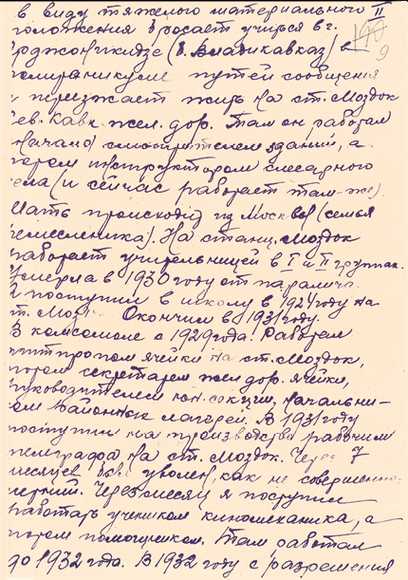 в виду тяжелого материального II
положения бросает учиться в г.
Орджоникидзе (б. Владикавказ) в
9
путей сообщения
и переезжает жить на ст. Моздок
Сев. Кавк. жел. дор. Там он работал
начало смотрителем зданий, а
потом инструктором слесарного
дела (и сейчас работает там-же)
Мать происходит из Москвы (семья
ремесленика). На станц. Моздок
работает учительницей в I и II группах.
Умерла в 1930 году от паралича.
Я поступил в школу в 1924 году на
ст. Мозд. Окончил в 1931 году.
В комсомоле с 1929 года. Работал
ячейки на ст. Моздок,
потом секретарем жел. дор. ячейки,
руководителем начальни-
ком районных лагерей. В 1931 году
поступил на производство рабочим
телеграфа на ст. Моздок. Через 7
месяцев был уволен, как не совершенно-
летний. Через месяц я поступил
работать учеником киномеханика, а
потом помощником. Там работал
до 1932 года. В 1932 году с разрешения